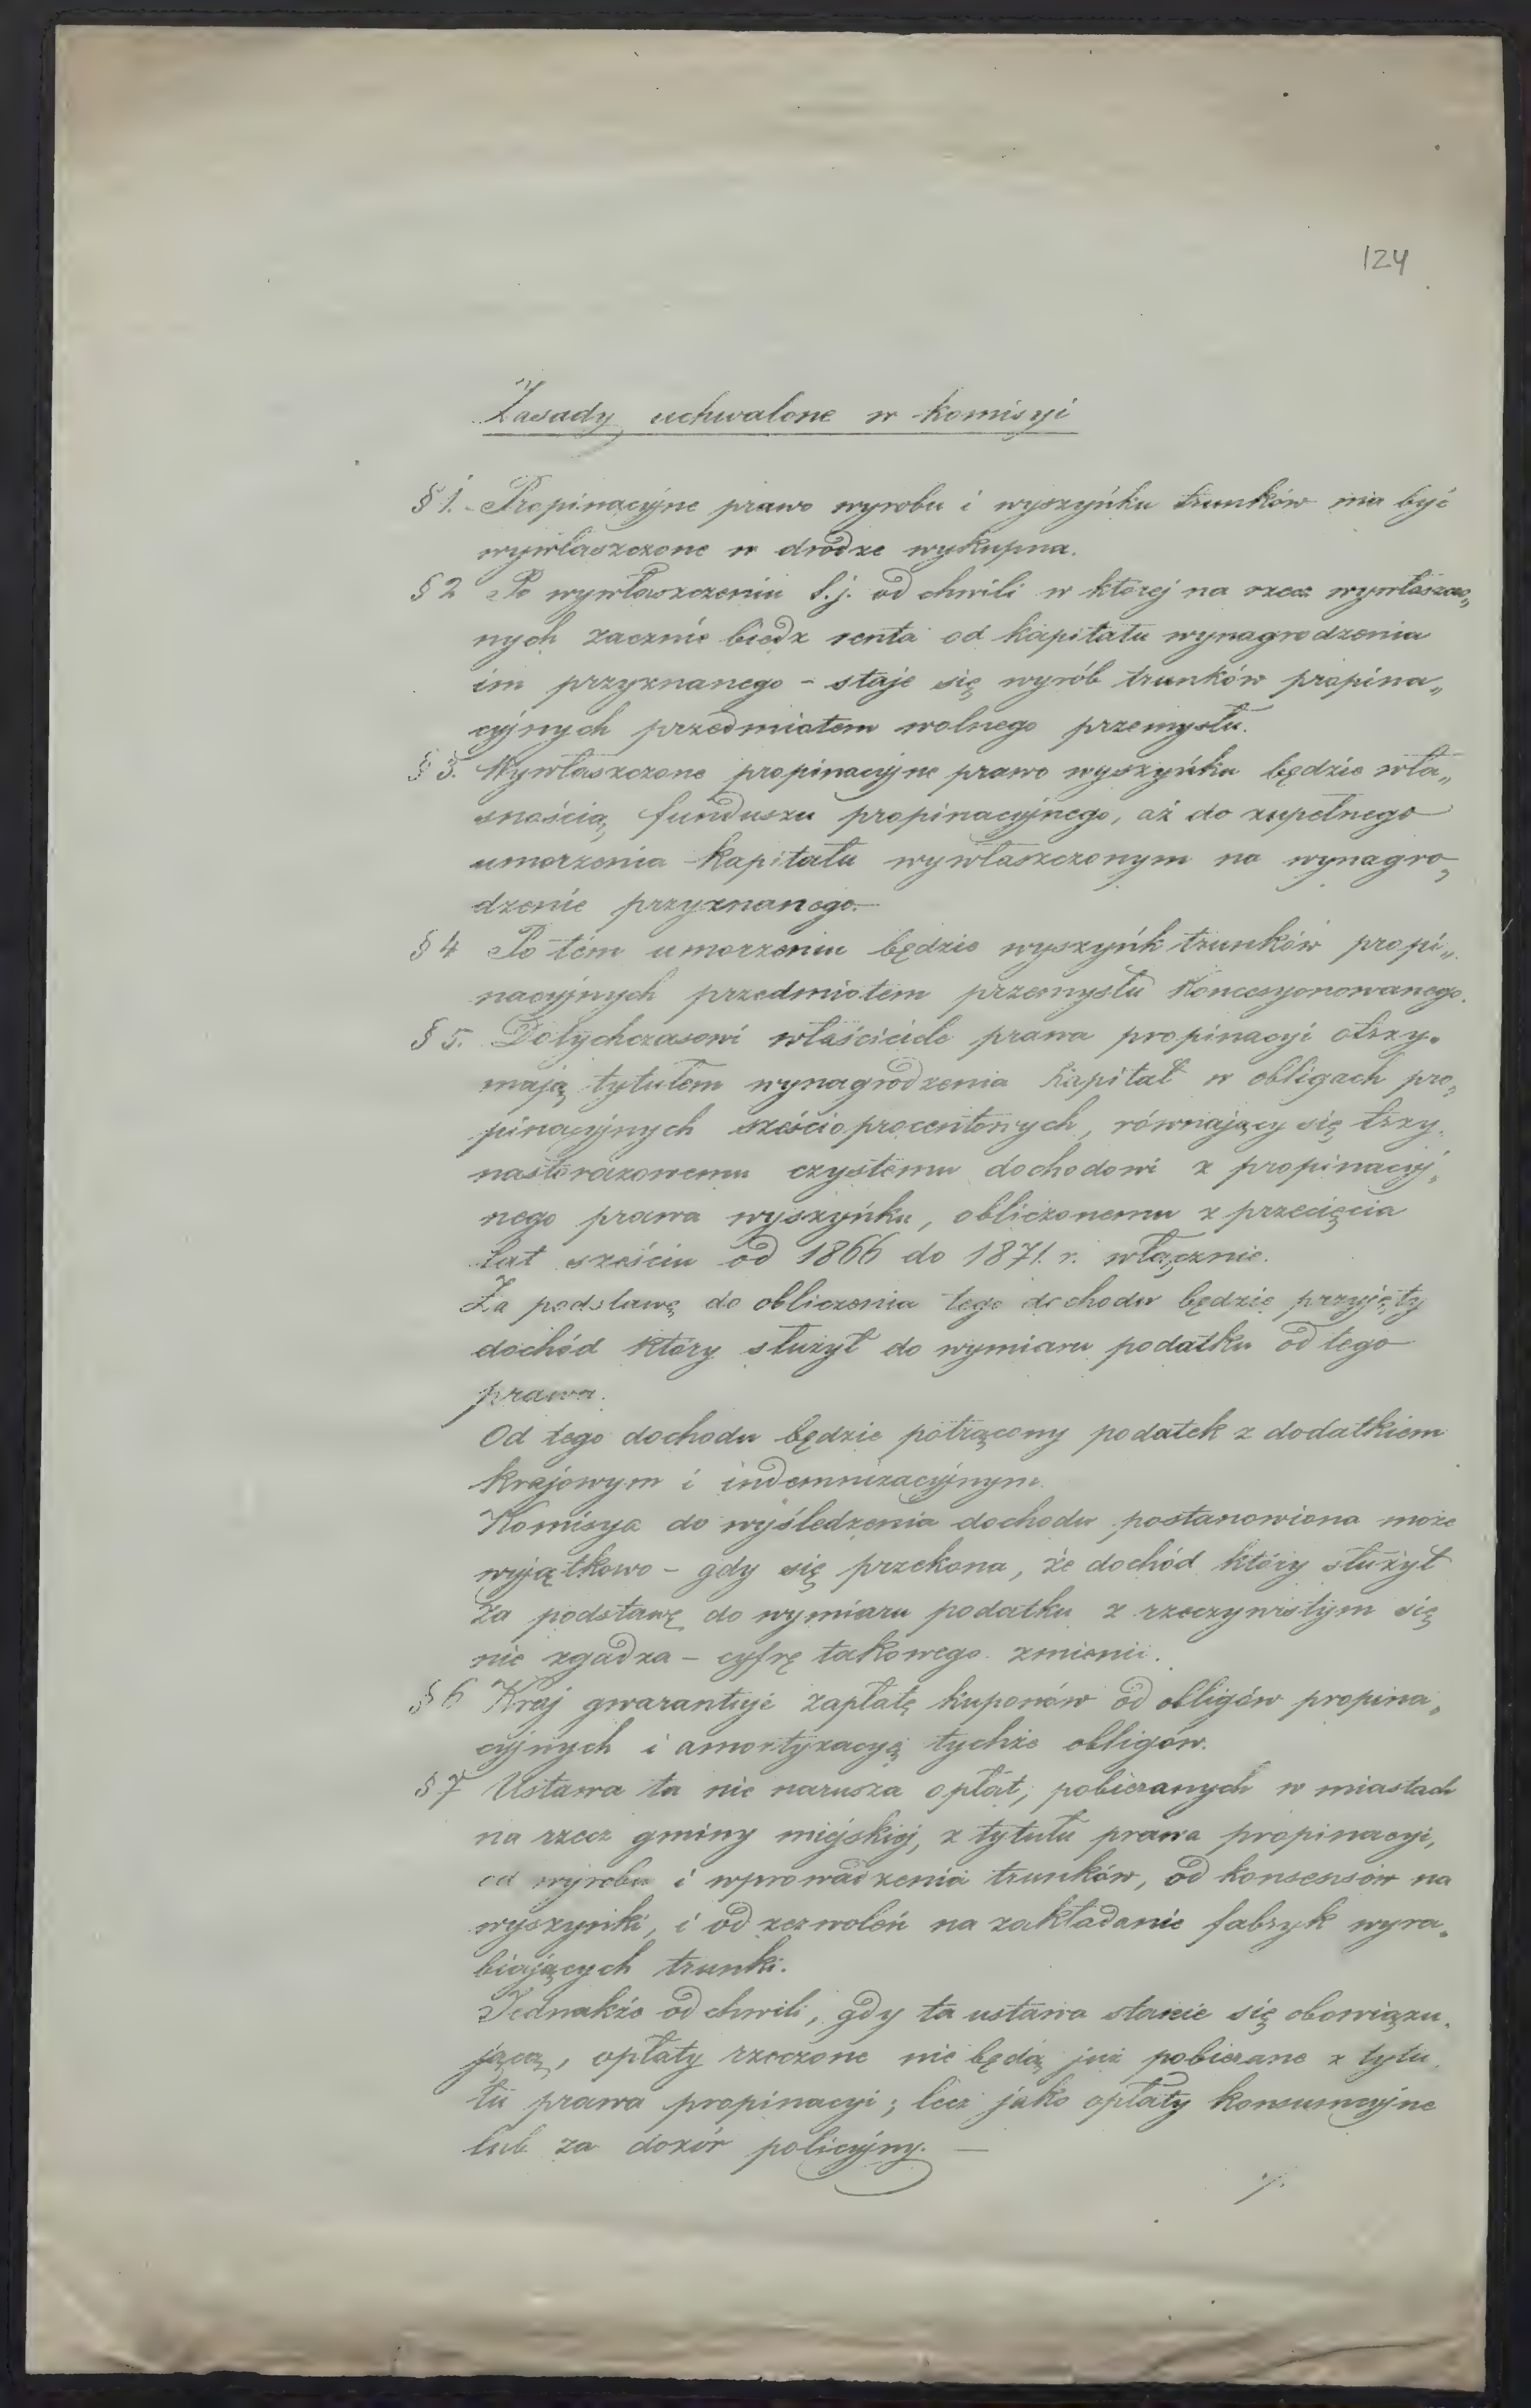 124
Zasady uchwalone w komisyi
§ 1. Propinacyjne prawo wyrobu i wyszyńku trunków ma być
wywłaszczone w drodze wykupna.
§ 2 Po wywłaszczeniu t.j. od chwili w której na rzecz wywłaszczo„
nych zacznie biedz renta od kapitału wynagrodzenia
im przyznanego – staje się wyrób trunków propina„
cyjnych przedmiotem wolnego przemysłu.
§ 3. Wywłaszczone propinacyjne prawo wyszyńku będzie wła„
snością funduszu propinacyjnego, aż do zupełnego
umorzenia kapitału wywłaszczonym na wynagro„
dzenie przyznanego.—
§ 4 Po tém umorzeniu będzie wyszyńk trunków propi„
nacyjnych przedmiotem przemysłu koncesyonowanego.
§ 5. Dotychczasowi właściciele prawa propinacyi otrzy„
mają tytułem wynagrodzenia kapitał w obligach pro„
pinacyjnych sześcioprocentowych, równający się trzy„
nastorazowemu czystemu dochodowi z propinacyj„
nego prawa wyszyńku, obliczonemu z przecięcia
lat sześciu od 1866 do 1871. r. włącznie.
Za podstawę do obliczenia tego dochodu będzie przyjęty
dochód który służył do wymiaru podatku od tego
prawa.
Od tego dochodu będzie potrącony podatek z dodatkiem
krajowym i indemnizacyjnym.
Komisya do wyśledzenia dochodu postanowiona może
wyjątkowo – gdy się przekona, że dochód który służył
za podstawę do wymiaru podatku z rzeczywistym się
nie zgadza – cyfrę takowego zmienić.
§ 6 Kraj gwarantuje zapłatę kuponów od obligów propina„
cyjnych i amortyzacyą tychże obligów.
§ 7 Ustawa ta nie narusza opłat, pobieranych w miastach
na rzecz gminy miejskiej, z tytułu prawa propinacyi,
od wyrobu i wprowadzenia trunków, od konsensów na
wyszynki, i od zezwoleń na zakładanie fabryk wyra„
biających trunki.
Jednakże od chwili, gdy ta ustawa stanie się obowiązu„
jącą, opłaty rzeczone nie będą już pobierane z tytu„
łu prawa propinacyi; lecz jako opłaty konsumcyjne
lub za dozór policyjny. —
./.